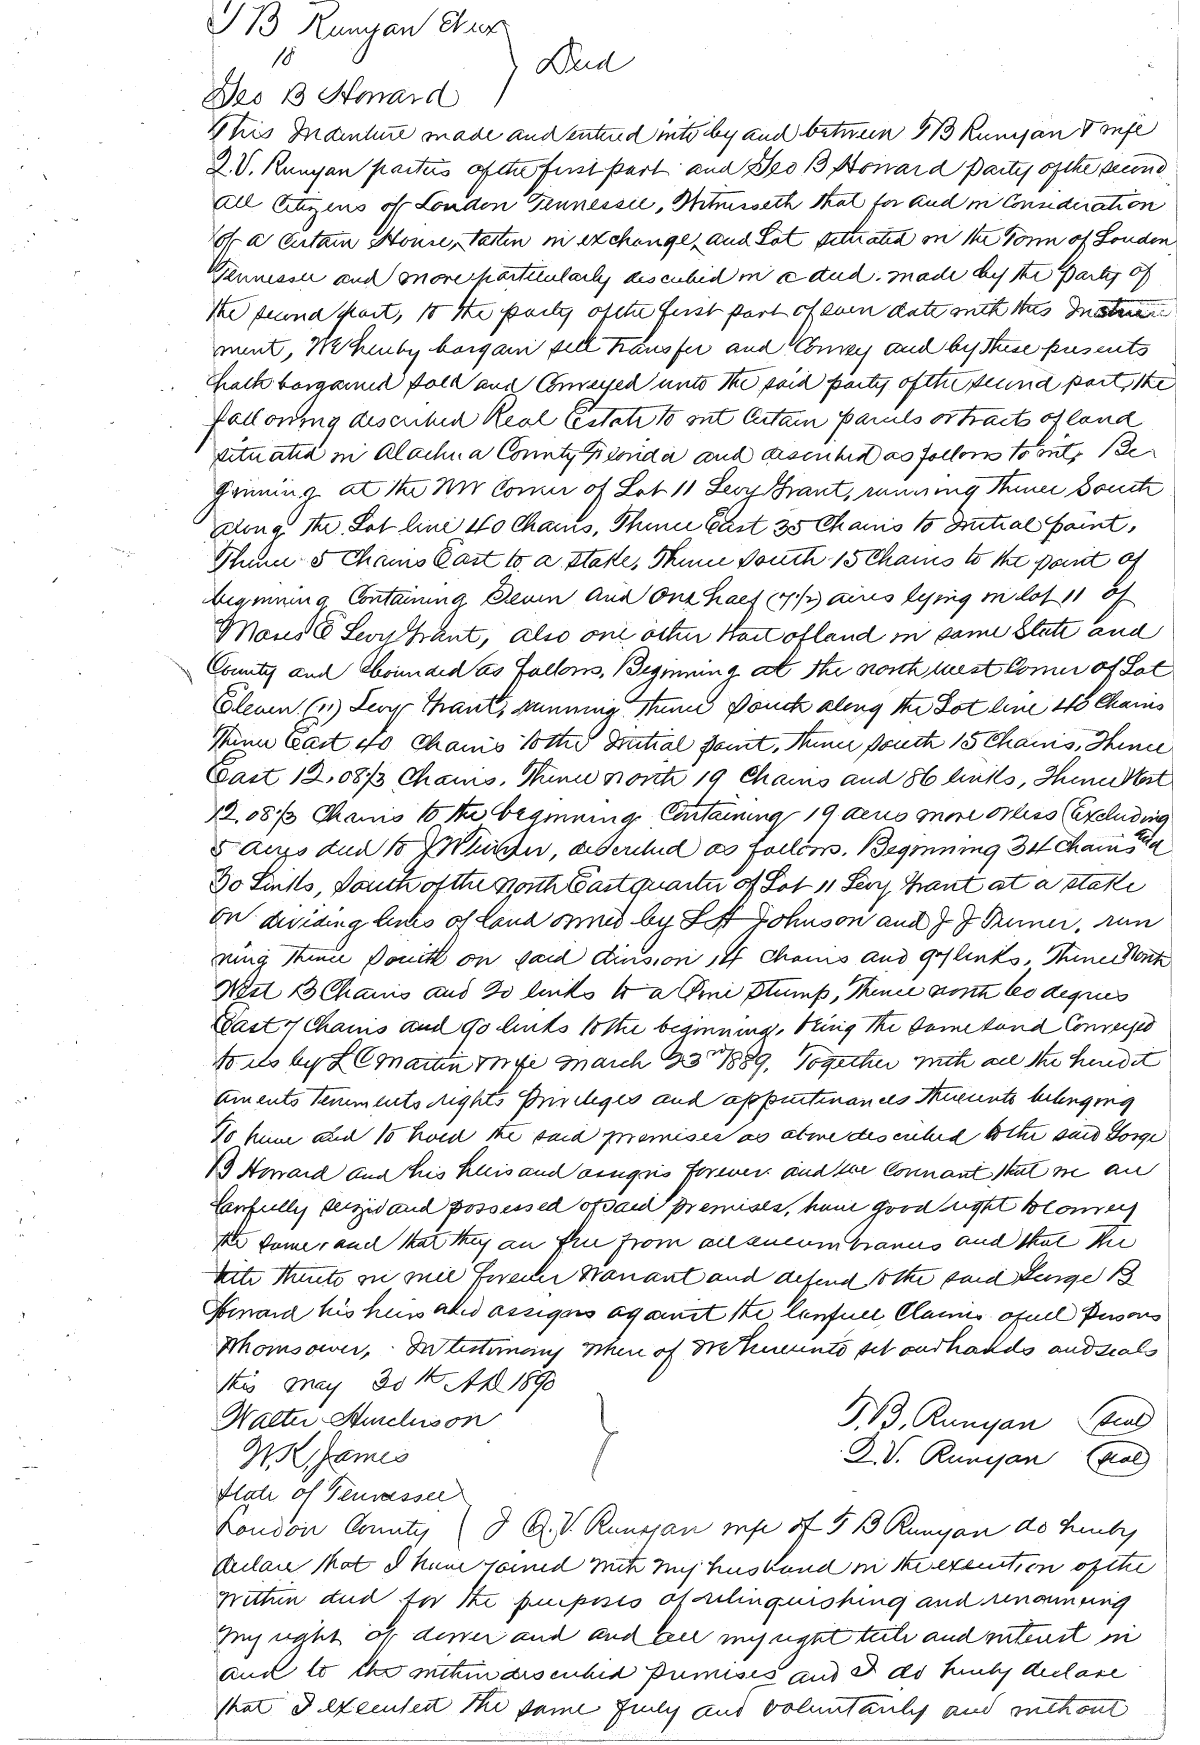 T B Runyan et ux
to } Deed
Geo B Howard
This Indenture made and entered into by and between T B Runyan & wife
Q.V. Runyan parties of the first part and Geo B Howard party of the second
all Citizens of Loudon Tennessee, Witnesseth that for and in Consideration
of a certain House, taken in exchange, and Lot situated in the Town of Loudon
Tennessee and more particularly described in a deed made by the party of
the second part, to the party of the first part of even date with this Instru
ment, We hereby bargain sell transfer and Convey and by these presents
hath bargained sold and Conveyed unto the said party of the second part, the
following described Real Estate to wit Certain parcels or tracts of land
situated in Alachua County Florida and described as follows to wit, Be
ginning at the NW Corner of Lot 11 Levy Grant, running thence South
along the Lot line 40 Chains, Thence East 35 Chains to Initial point,
Thence 5 Chains East to a stake, Thence South 15 Chains to the point of
beginning Containing Seven and One half (7 1/2) acres lying in lot 11 of
Moses E Levy Grant, also one other tract of land in same State and
County and bounded as follows, Beginning at the north west Corner of Lot
Eleven (11) Levy Grant, running thence South along the Lot line 40 Chains
Thence East 40 Chains to the Initial point, thence South 15 Chains, Thence
East 12.08 1/3 Chains, Thence north 19 Chains and 86 links, Thence West
12.08 1/3 Chains to the beginning Containing 19 acres more or less (Excluding
5 acres deed to J, described as follows. Beginning 34 Chains and
30 Links, South of the North East quarter of Lot 11 Levy Grant at a stake
on dividing lines of land owned by L A Johnson and J J Turner, run
ning thence South on said division 14 Chains and 97 links, Thence North
West 13 Chains and 20 links to a Pine Stump, thence north 60 degrees
East 7 Chains and 90 links to the beginning, being the same land Conveyed
to us by L C Martin & wife March 23rd 1889, Together with all the heredit
aments tenements rights Privileges and appurtinances thereunto belonging
To have and to hold the said premises as above described to the said George
B Howard and his heirs and assigns forever and we covenant that we are
lawfully seized and possessed of said premises, have good right to convey
the same, and that they are free from all encumbrances and that the
title thereto we will forever warrant and defend to the said George B
Howard his heirs and assigns against the lawfull Claims of all Persons
Whomsoever, In testimony where of We hereunto set our hands and seals
this May 30th A.D. 1890
Walter Hutcherson } T.B. Runyan (seal)
W.K. James Q.V. Runyan (seal)
State of Tennessee
Loudon County ( I Q.V. Runyan wife of T B Runyan do hereby
declare that I have joined with my husband in the execution of the
within deed for the purposes of relinquishing and renouncing
my right of dower and and all my right title and interest in
and to the within described premises and I do hereby declare
that I executed the same freely and voluntarily and without